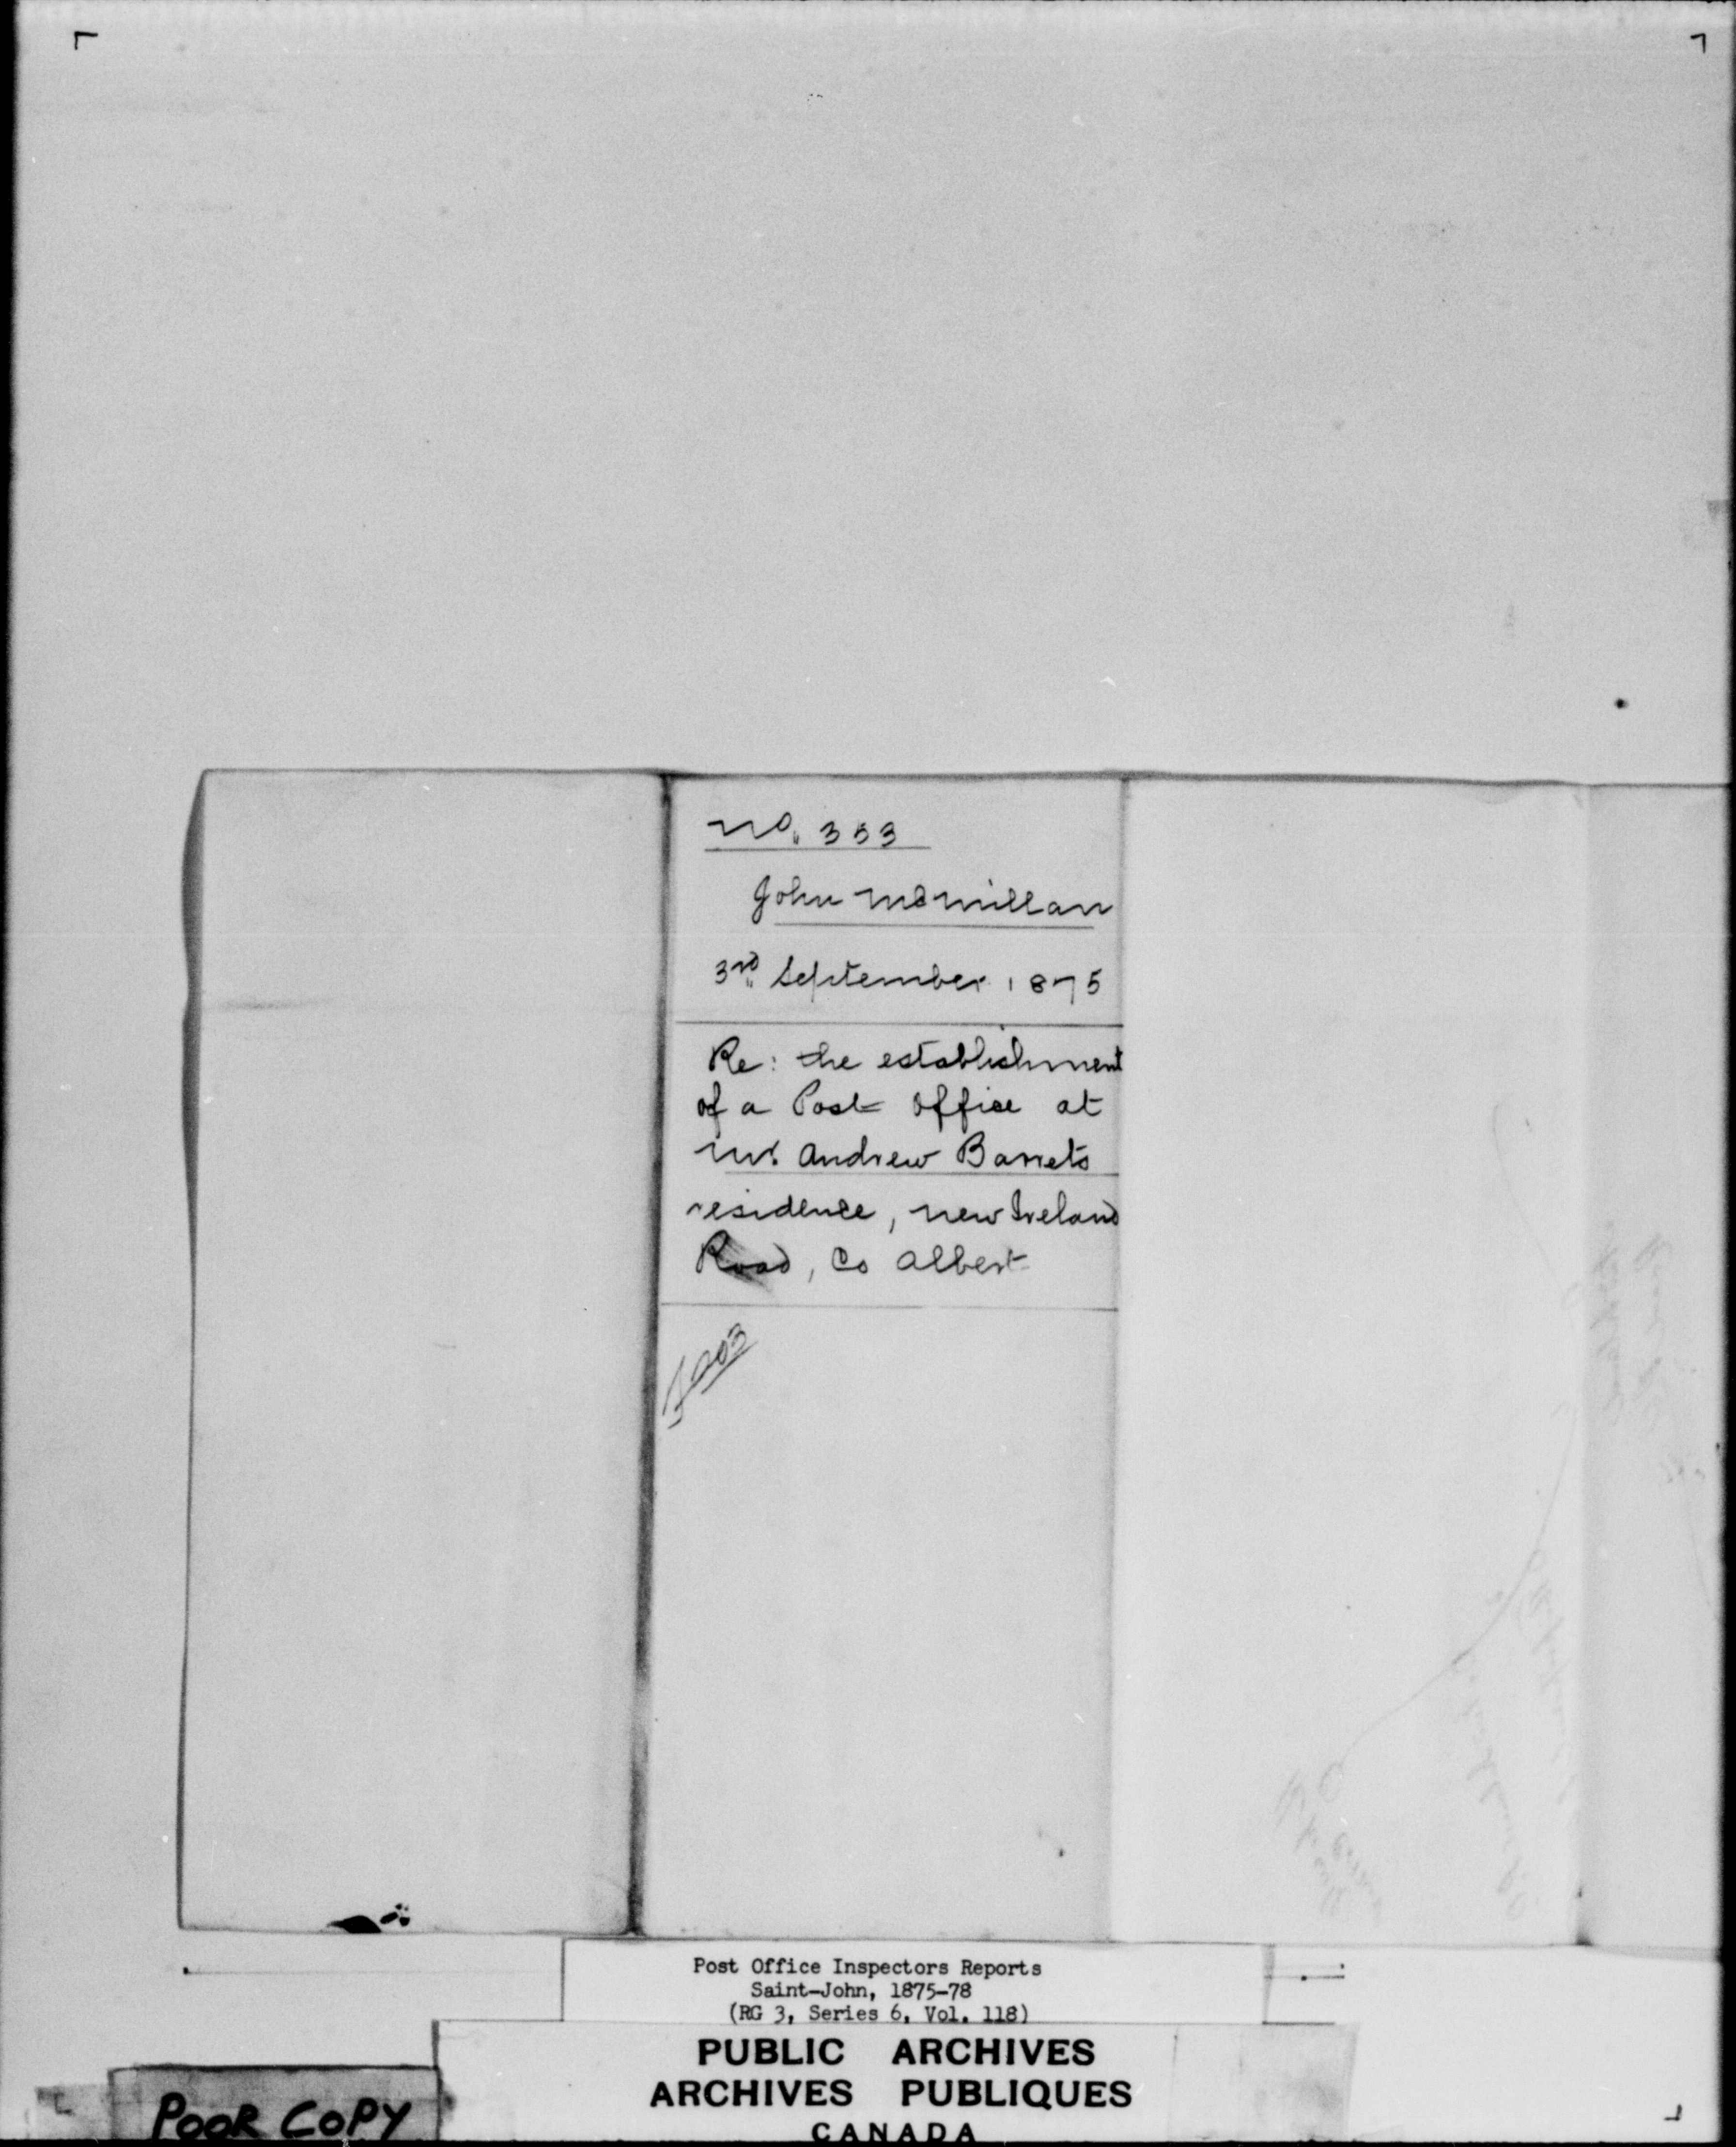 No. 353
John McMillan
3rd September 1875
Re: the establishment
of a Post Office at
Mr. Andrew Barrets
residence, New Ireland
Road, Co Albert
Post Office Inspectors Reports
Saint-John, 1875-78
(RG 3, Series 6, Vol. 118)
PUBLIC ARCHIVES
ARCHIVES PUBLIQUES
CANADA
POOR COPY